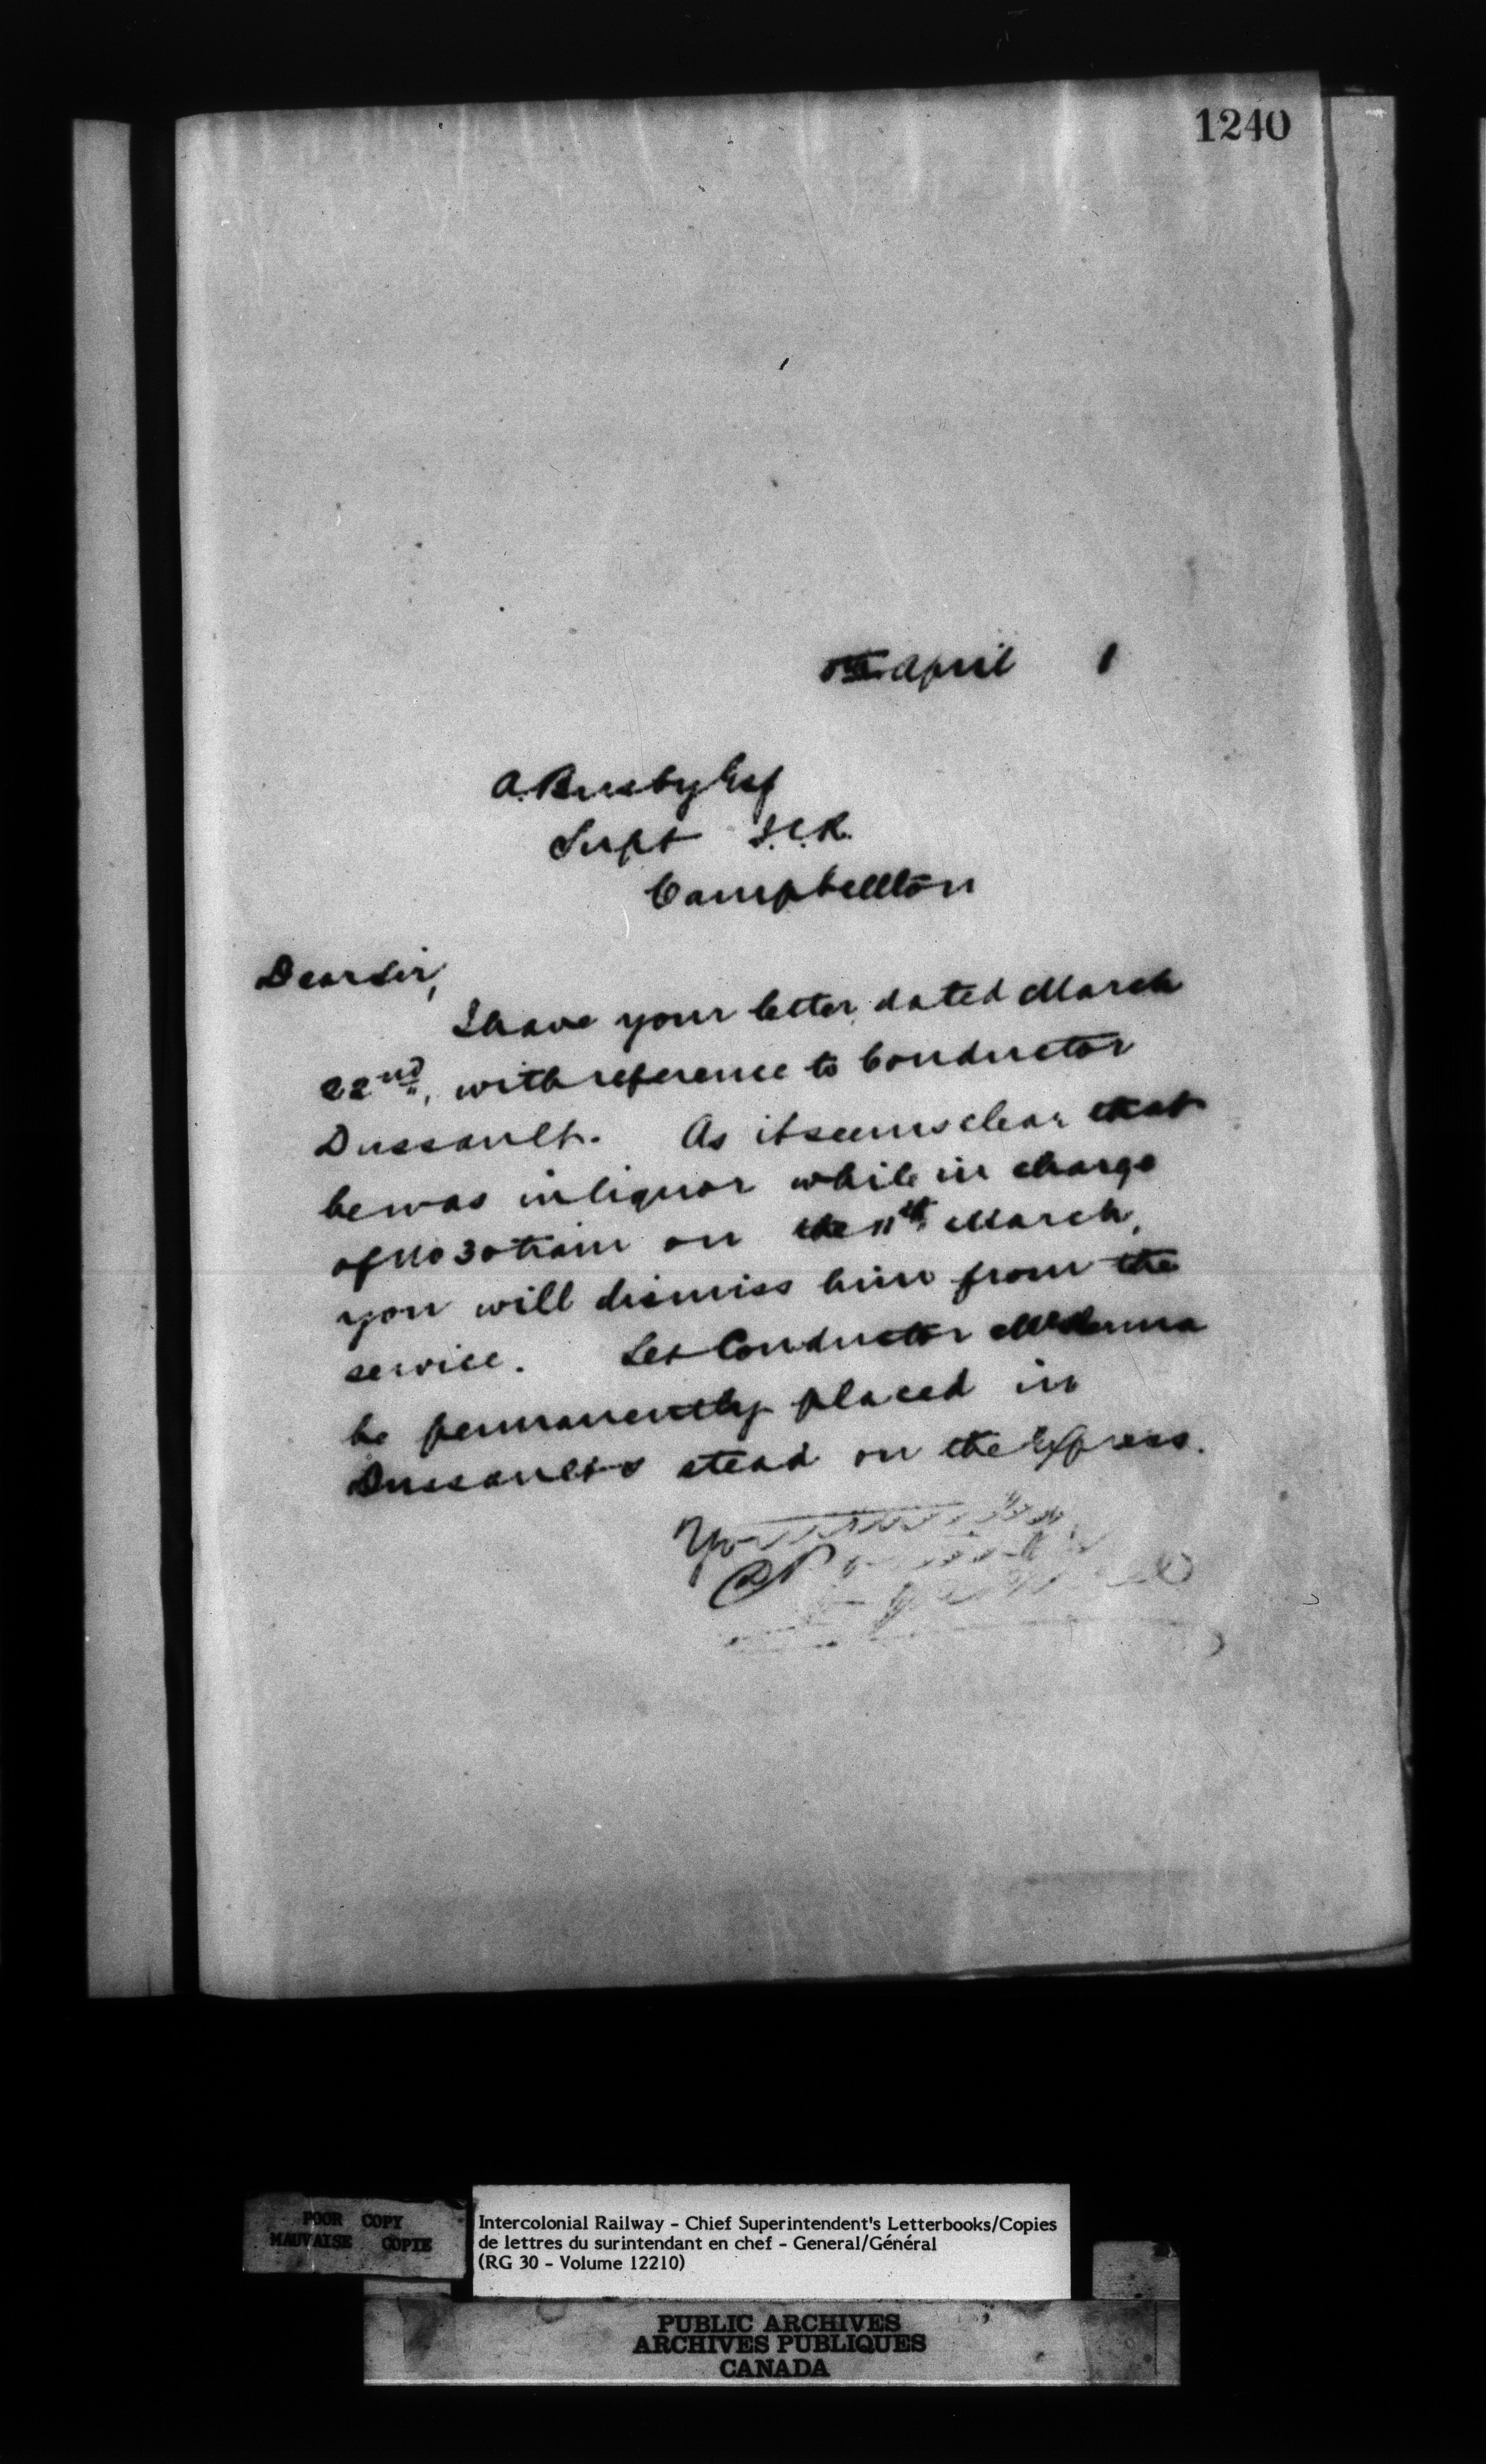 1240
April 1
A. Busby Esq
Supt I.C.R.
Campbellton
Dear Sir,
I have your letter dated March
22nd, with reference to Conductor
Dussault. As it seems clear that
he was in liquor while in charge
of No 30 train on the 11th March,
you will dismiss him from the
service. Let Conductor
be permanently placed in
Dussault's stead on the Express.
POOR COPY
MAUVAISE COPIE
Intercolonial Railway - Chief Superintendent's Letterbooks/Copies
de lettres du surintendant en chef - General/Général
(RG 30 - Volume 12210)
PUBLIC ARCHIVES
ARCHIVES PUBLIQUES
CANADA